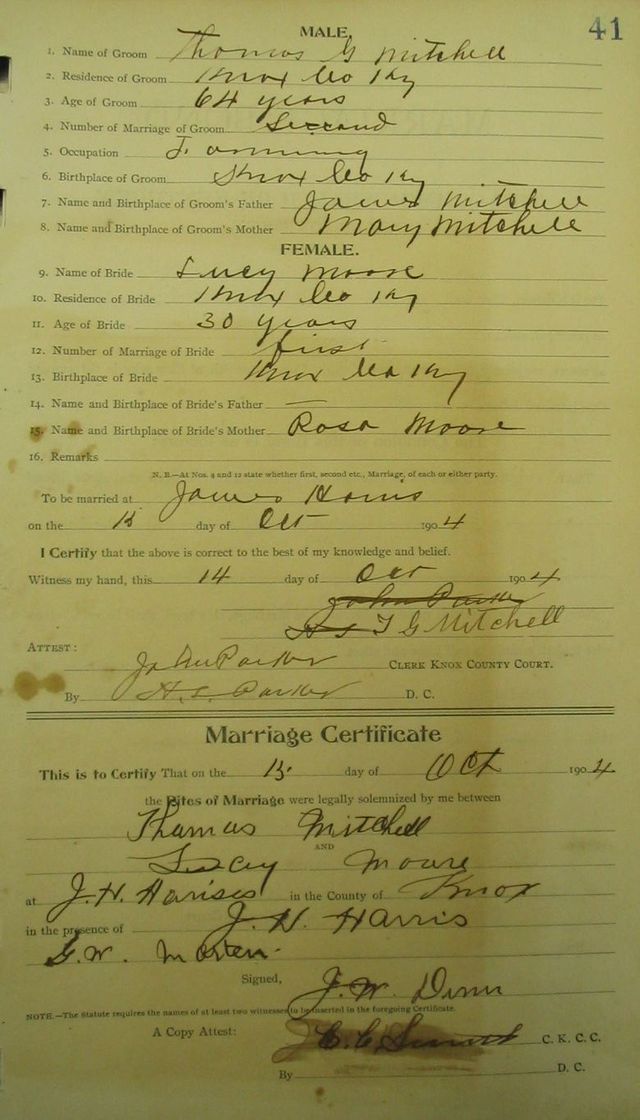 41
MALE.
1. Name of Groom Thomas G Mitchell
2. Residence of Groom Knox Co Ky
3. Age of Groom 64 years
4. Number of Marriage of Groom Second
5. Occupation Farming
6. Birthplace of Groom Knox Co Ky
7. Name and Birthplace of Groom's Father James Mitchell
8. Name and Birthplace of Groom's Mother Mary Mitchell
FEMALE.
9. Name of Bride Lucy Moore
10. Residence of Bride Knox Co Ky
11. Age of Bride 30 years
12. Number of Marriage of Bride first
13. Birthplace of Bride Knox Co Ky
14. Name and Birthplace of Bride's Father —
15. Name and Birthplace of Bride's Mother Rosa Moore
16. Remarks
N. B.—At Nos. 4 and 12 state whether first, second etc., Marriage, of each or either party.
To be married at James
on the 15 day of Oct 1904
I Certify that the above is correct to the best of my knowledge and belief.
Witness my hand, this 14 day of Oct 1904
John Parker
T G Mitchell
ATTEST:
John Parker CLERK KNOX COUNTY COURT.
By H. S. Parker D. C.
Marriage Certificate
This is to Certify That on the 15 day of Oct 1904
the Rites of Marriage were legally solemnized by me between
Thomas Mitchell
AND
Lucy Moore
at J. H. Harises in the County of Knox
in the presence of J. H. Harris
G. W.
Signed, J. W. Dunn
NOTE.—The Statute requires the names of at least two witnesses to be inserted in the foregoing Certificate.
A Copy Attest: C. K. C. C.
By D. C.